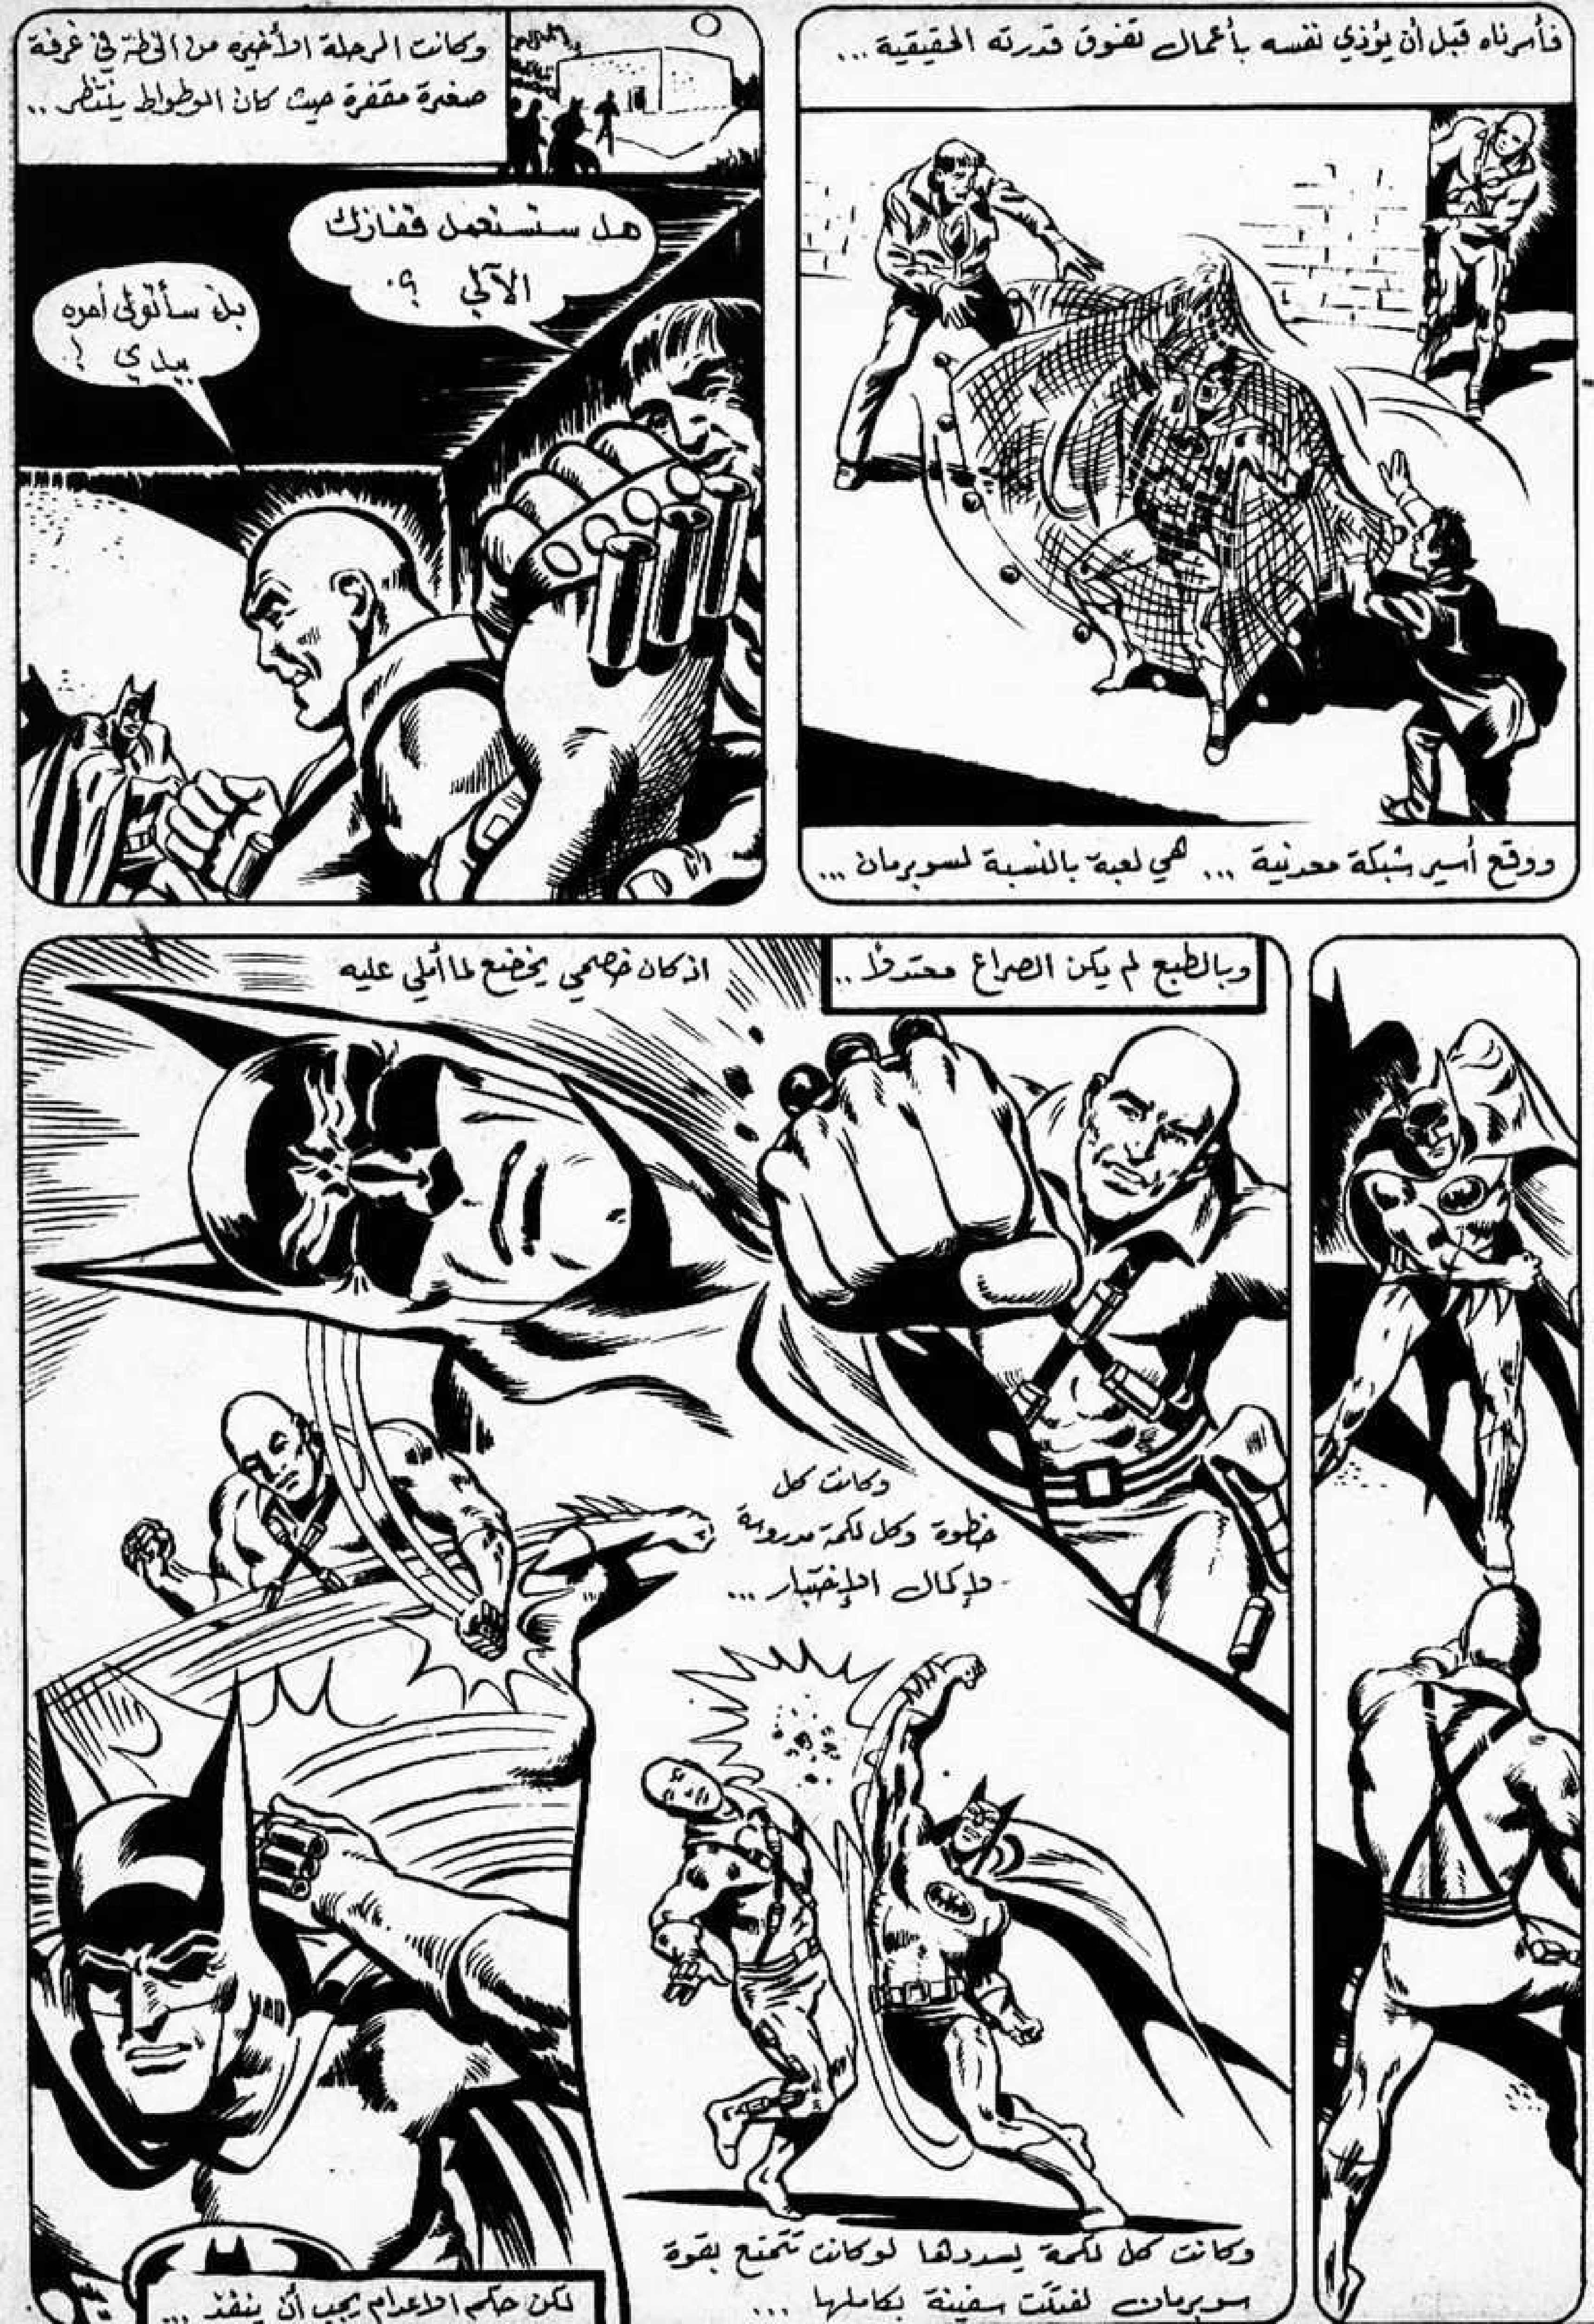 فأسرناه قبل أن يؤذي نفسه بأعمال تفوق قدرته الحقيقية ...
ووقع أسير شبكة معدنية ... هي لعبة بالنسبة لسوبرمان ...
وكانت المرحلة الأخيره من الخطة في غرفة
صغيرة مقفرة حيث كان الوطواط ينتظر ..
هل ستستعمل قفازك
الآلي ؟
بل سأتولى أمره
بيدي !
وبالطبع لم يكن الصراع معتدلاً ..
اذ كان خصمي يخضع لما أملي عليه
وكانت كل
خطوة وكل لكمة مدروسة
لإكمال الإختبار ...
وكانت كل لكمة يسددها لو كانت تتمتع بقوة
سوبرمان لفتتت سفينة بكاملها ...
لكن حكم الاعدام يجب أن ينفذ ...